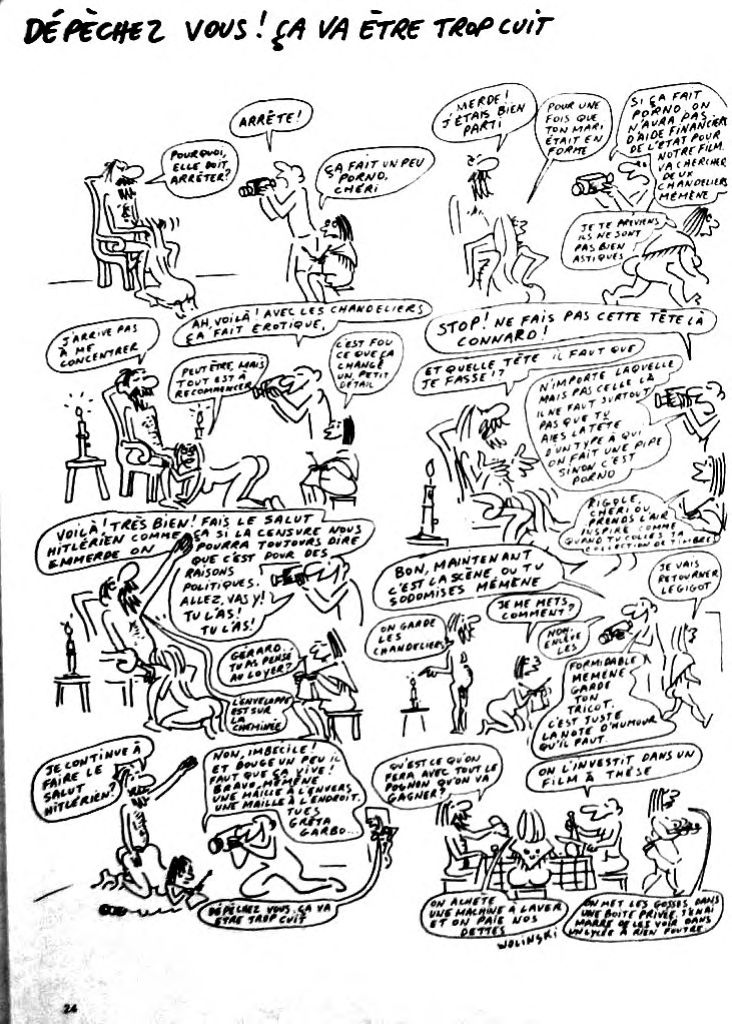 DÉPÈCHEZ VOUS! ÇA VA ÊTRE TROP CUIT
POURQUOI,
ELLE DOIT
ARRÊTER?
ARRÊTE!
ÇA FAIT UN PEU
PORNO,
CHÉRI
MERDE!
J'ÉTAIS BIEN
PARTI
POUR UNE
FOIS QUE
TON MARI
ÉTAIT EN
FORME
SI ÇA FAIT
PORNO, ON
N'AURA PAS
D'AIDE FINANCIÈRE
DE L'ÉTAT POUR
NOTRE FILM.
VA CHERCHER
DEUX
CHANDELIERS
MÉMÈNE
JE TE PRÉVIENS
ILS NE SONT
PAS BIEN
ASTIQUÉS
J'ARRIVE PAS
À ME
CONCENTRER
AH, VOILÀ! AVEC LES CHANDELIERS
ÇA FAIT ÉROTIQUE.
PEUT ÊTRE, MAIS
TOUT EST À
RECOMMENCER
C'EST FOU
CE QUE ÇA
CHANGE
UN PETIT
DÉTAIL
STOP! NE FAIS PAS CETTE TÊTE LÀ
CONNARD!
ET QUELLE TÊTE IL FAUT QUE
JE FASSE!?
N'IMPORTE LAQUELLE
MAIS PAS CELLE LÀ
IL NE FAUT SURTOUT
PAS QUE TU
AIES LA TÊTE
D'UN TYPE À QUI
ON FAIT UNE PIPE
SINON C'EST
PORNO
RIGOLE,
CHÉRI OU
PRENDS L'AIR
INSPIRÉ COMME
QUAND TU COLLES TA
COLLECTION DE TIMBRES
VOILÀ! TRÈS BIEN! FAIS LE SALUT
HITLÉRIEN COMME ÇA SI LA CENSURE NOUS
EMMERDE ON POURRA TOUJOURS DIRE
QUE C'EST POUR DES
RAISONS
POLITIQUES.
ALLEZ, VAS Y!
TU L'AS!
TU L'AS!
GÉRARD,
TU AS PENSÉ
AU LOYER?
L'ENVELOPPE
EST SUR
LA
CHEMINÉE
BON, MAINTENANT
C'EST LA SCÈNE OU TU
SODOMISES MÉMÈNE
ON GARDE
LES
CHANDELIERS
JE ME METS
COMMENT?
NON.
ENLÈVE
LES
JE VAIS
RETOURNER
LE GIGOT
FORMIDABLE
MÉMÈNE
GARDE
TON
TRICOT.
C'EST JUSTE
LA NOTE D'HUMOUR
QU'IL FAUT.
JE CONTINUE À
FAIRE LE
SALUT
HITLÉRIEN?
NON, IMBÉCILE!
ET BOUGE UN PEU IL
FAUT QUE ÇA VIVE!
BRAVO, MÉMÈNE
UNE MAILLE À L'ENVERS
UNE MAILLE À L'ENDROIT.
TU ES
GRÉTA
GARBO...
DÉPÉCHEZ VOUS. ÇA VA
ÊTRE TROP CUIT
QU'EST CE QU'ON
FERA AVEC TOUT LE
POGNON QU'ON VA
GAGNER?
ON L'INVESTIT DANS UN
FILM À THÈSE
ON ACHÈTE
UNE MACHINE À LAVER
ET ON PAIE NOS
DETTES
ON MET LES GOSSES DANS
UNE BOITE PRIVÉE. J'EN AI
MARRE DE LES VOIR DANS
UN LYCÉE À RIEN FOUTRE
WOLINSKI
24